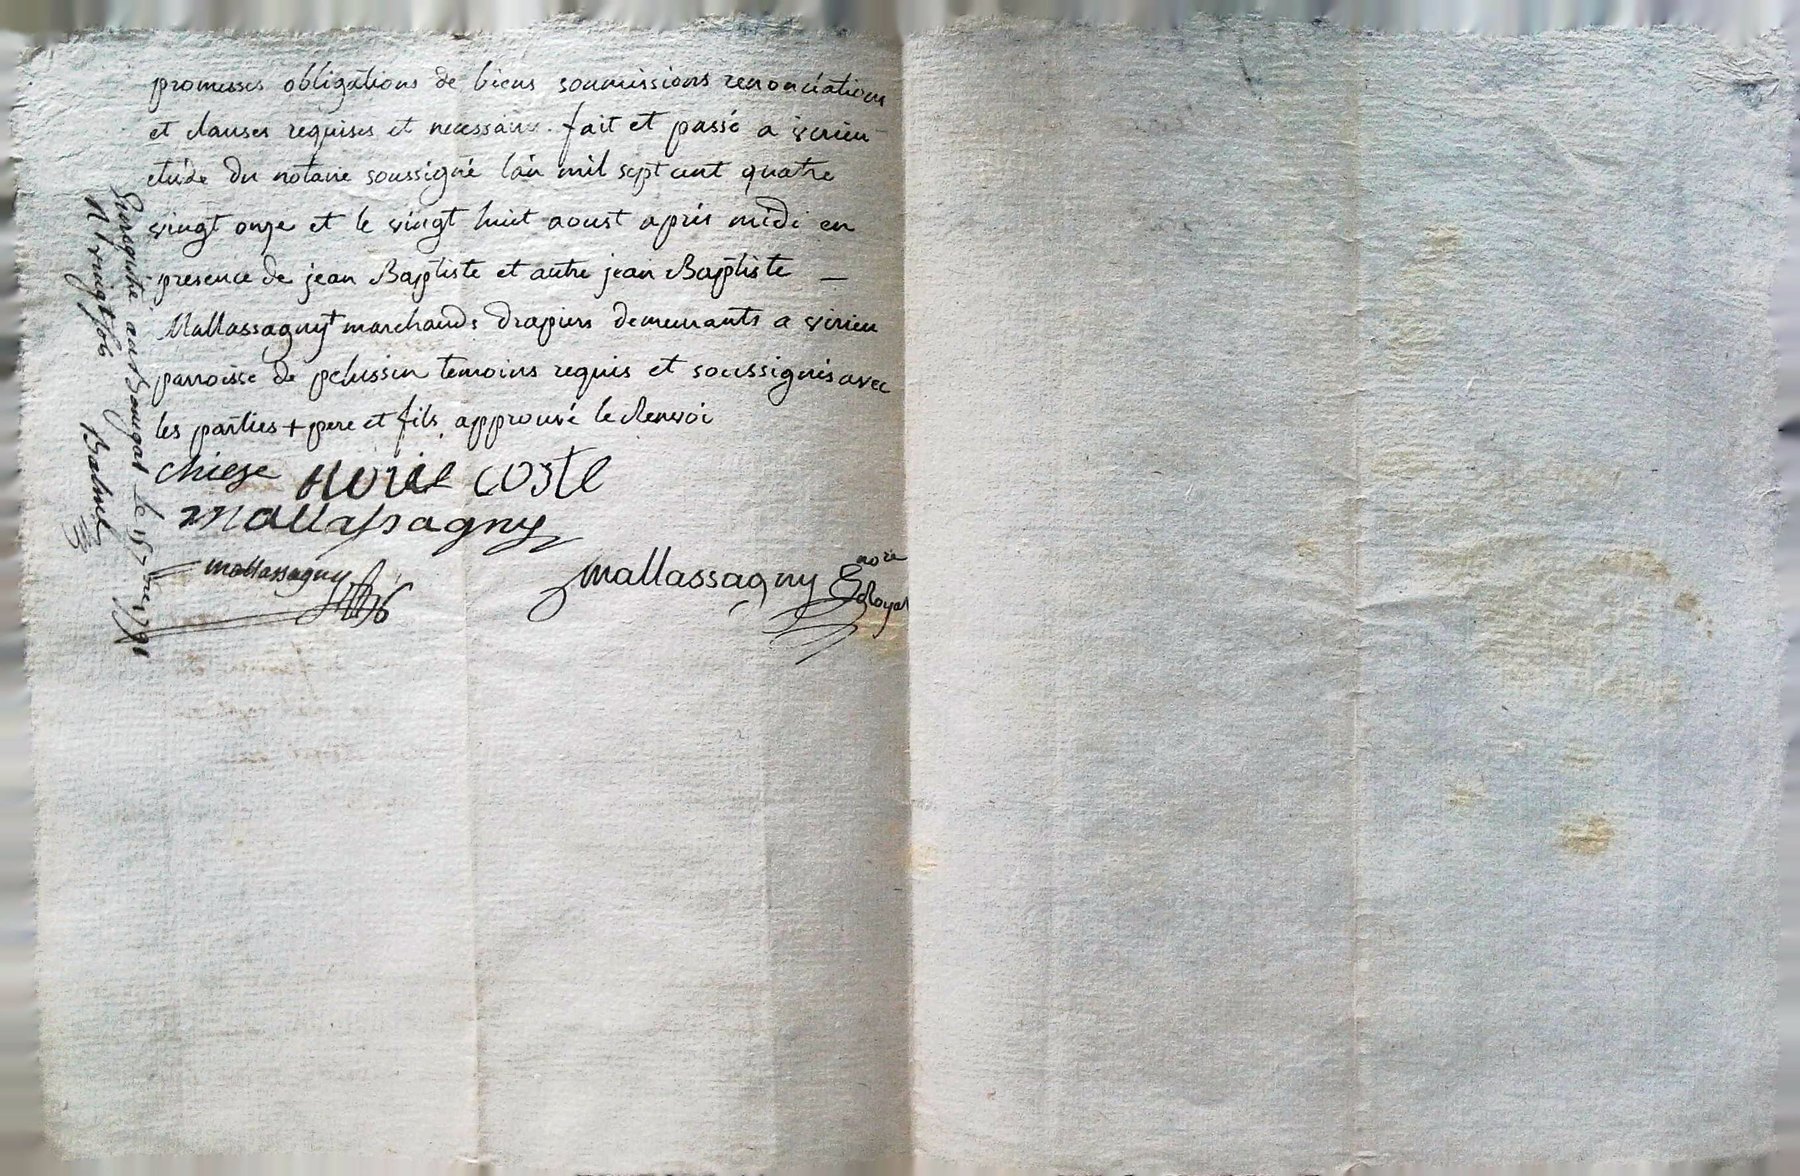 promesses obligations de biens soumissions renonciations
et clauses requises et necessaires. fait et passé a virieu
etude du notaire soussigné l'an mil sept cent quatre
vingt onze et le vingt huit aoust après midi en
presence de jean Baptiste et autre jean Baptiste —
Mallassagny + marchands drapiers demeurants a virieu
parroisse de pelussin temoins requis et soussignés avec
les parties + pere et fils approuvé le Renvoi
chieze coste
mallassagny
mallassagny
mallassagny
nore
Royal
Enregistré au Bourgat le 15 7bre 1791
Rt vingt sols